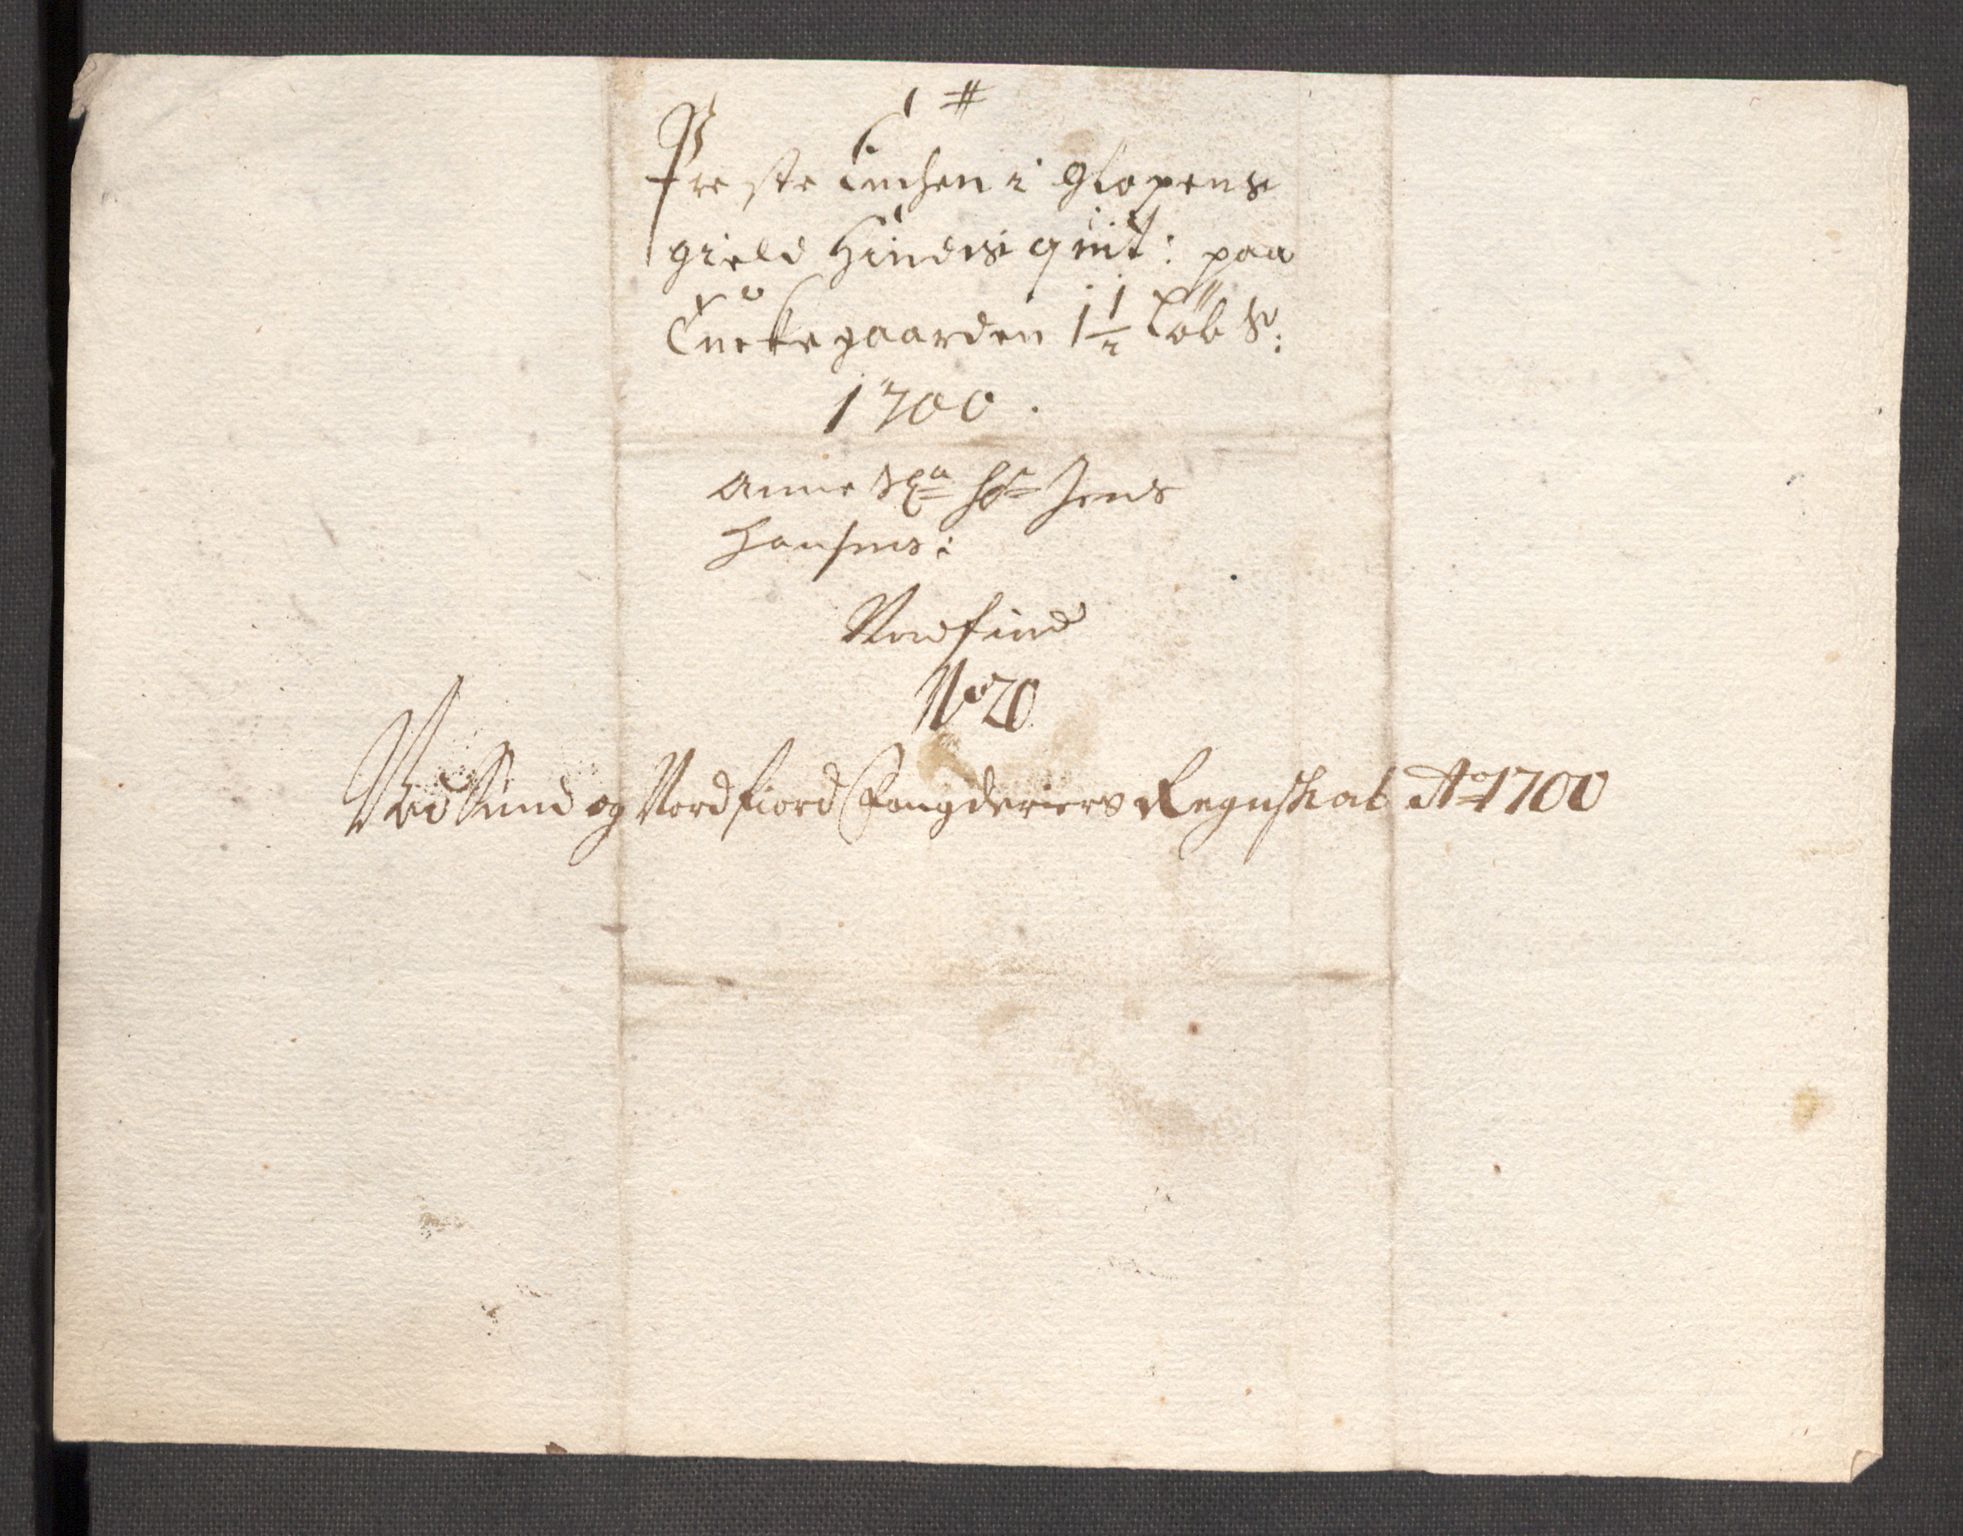 1 #
Preste Enchen i Glopens
gield Hindis quit: paa
Enckegaarden 1 1/2 Løb S:
1700.
Anne Sl: Hr Jens
Hansens:
Nordfiord
No 20
Ved Sund og Nordfiord Fougderiers Regnskab Ao 1700